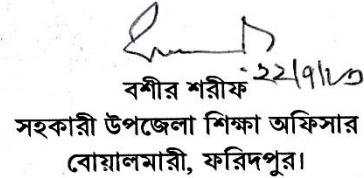 22/9/২০
বশীর শরীফ
সহকারী উপজেলা শিক্ষা অফিসার
বোয়ালমারী, ফরিদপুর।